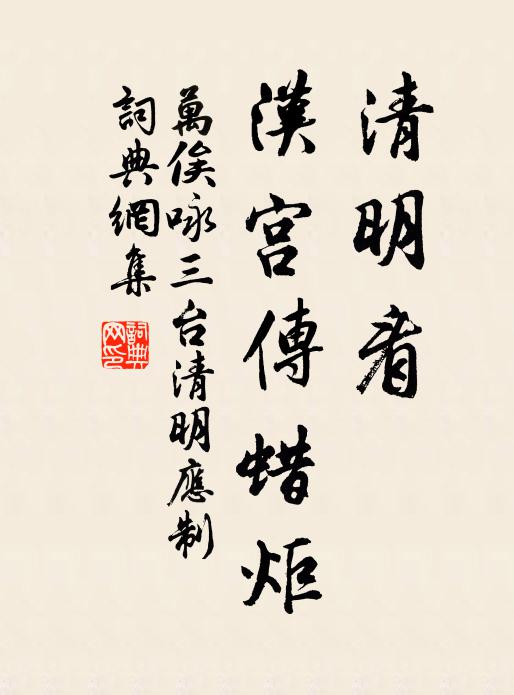 清明看
漢宮傳蜡炬
萬俟咏三台清明應制
詞典網集
詞典網印